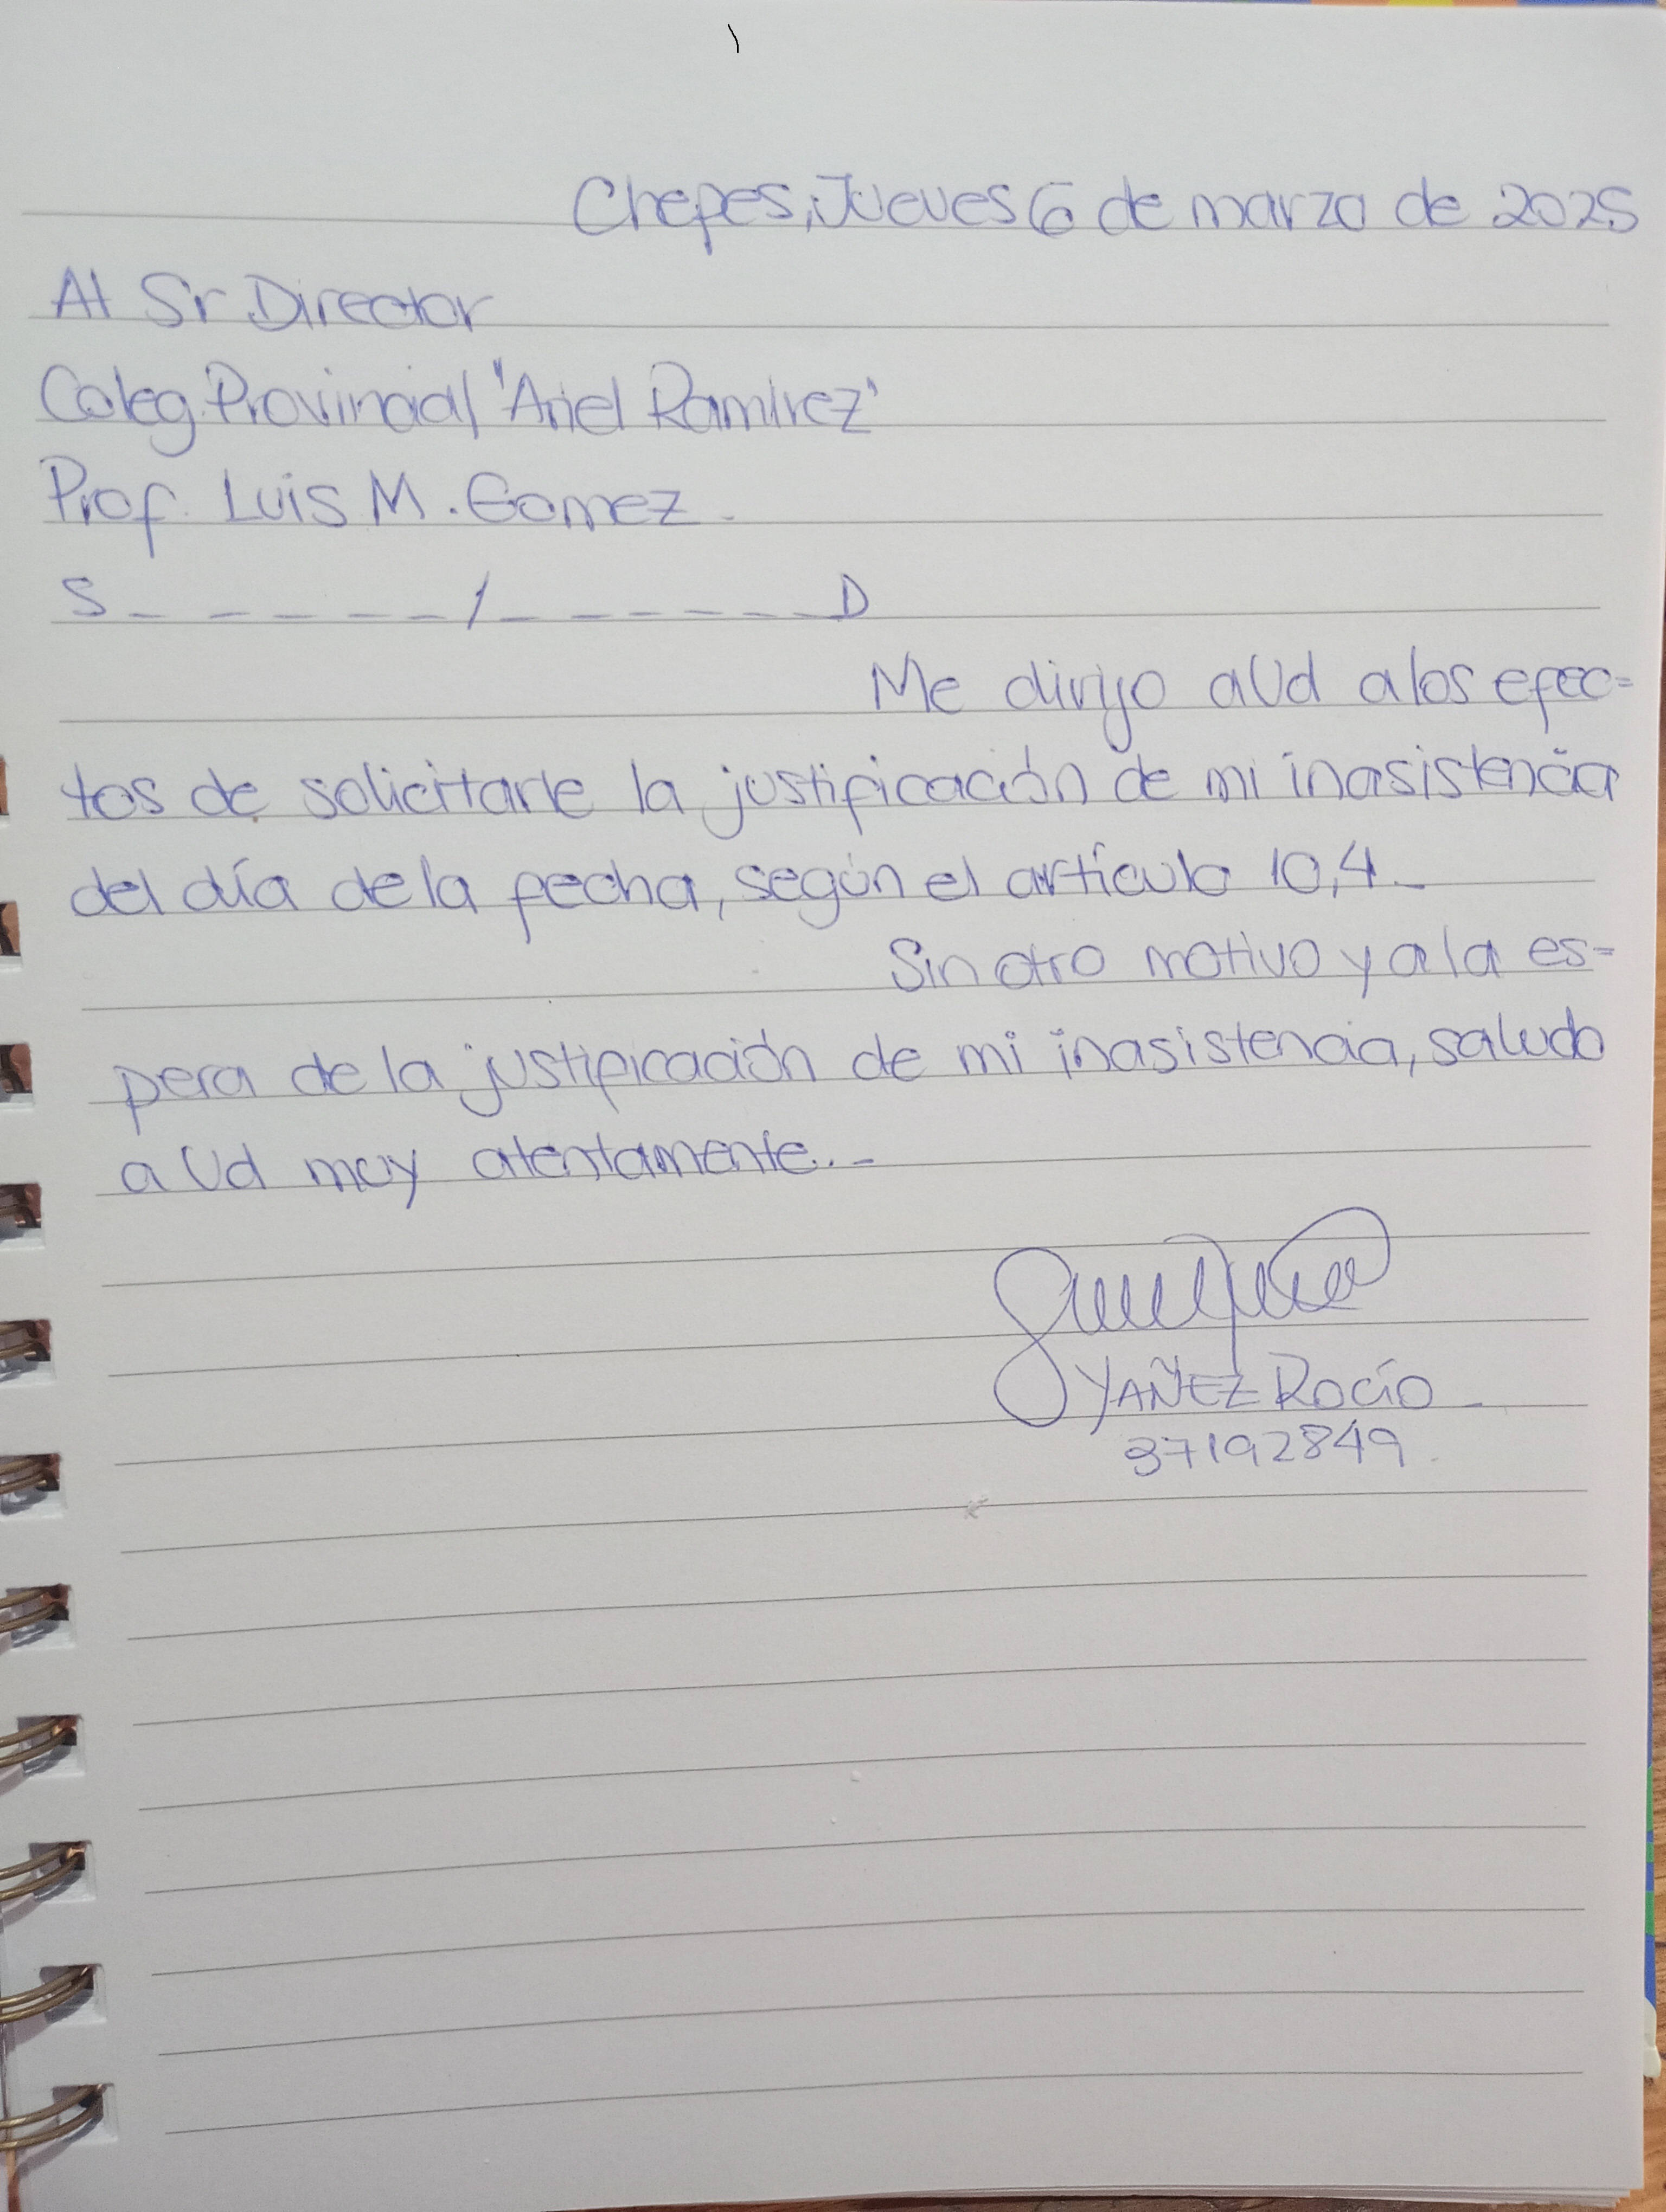 Chepes, Jueves 6 de marzo de 2025
Al Sr Director
Coleg. Provincial "Ariel Ramirez"
Prof. Luis M. Gomez.
S_ _ _ _ _ _/_ _ _ _ _ _D
Me dirijo a Ud a los efec=
tos de solicitarle la justificación de mi inasistencia
del día de la fecha, según el artículo 10,4._
Sin otro motivo y a la es=
pera de la justificación de mi inasistencia, saludo
a Ud muy atentamente._
YAÑEZ ROCÍO
37192849.